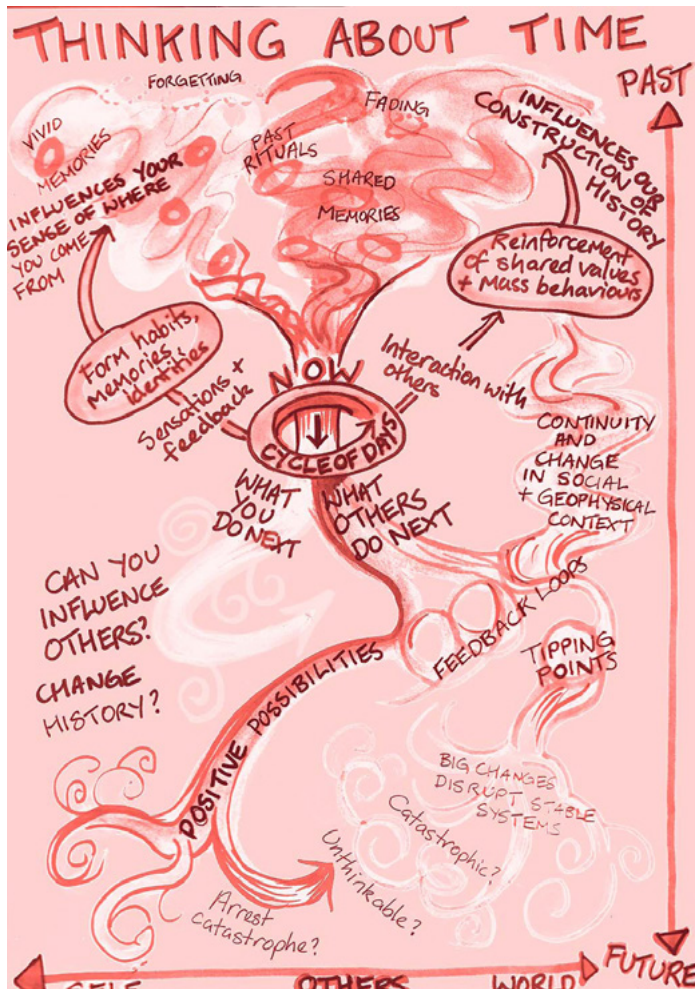 THINKING ABOUT TIME
PAST
FORGETTING
FADING
VIVID
MEMORIES
PAST
RITUALS
SHARED
MEMORIES
INFLUENCES OUR
CONSTRUCTION OF
HISTORY
INFLUENCES YOUR
SENSE OF WHERE
YOU COME
FROM
Reinforcement
of shared values
+ Mass behaviours
Form habits,
memories,
identities
Sensations +
feedback
NOW
CYCLE OF DAYS
Interaction with
others
CONTINUITY
AND
CHANGE
IN SOCIAL
+ GEOPHYSICAL
CONTEXT
WHAT
YOU
DO NEXT
WHAT
OTHERS
DO NEXT
CAN YOU
INFLUENCE
OTHERS?
CHANGE
HISTORY?
FEEDBACK LOOPS
TIPPING
POINTS
POSITIVE POSSIBILITIES
BIG CHANGES
DISRUPT STABLE
SYSTEMS
Catastrophic?
Unthinkable?
Arrest
catastrophe?
FUTURE
SELF
OTHERS
WORLD